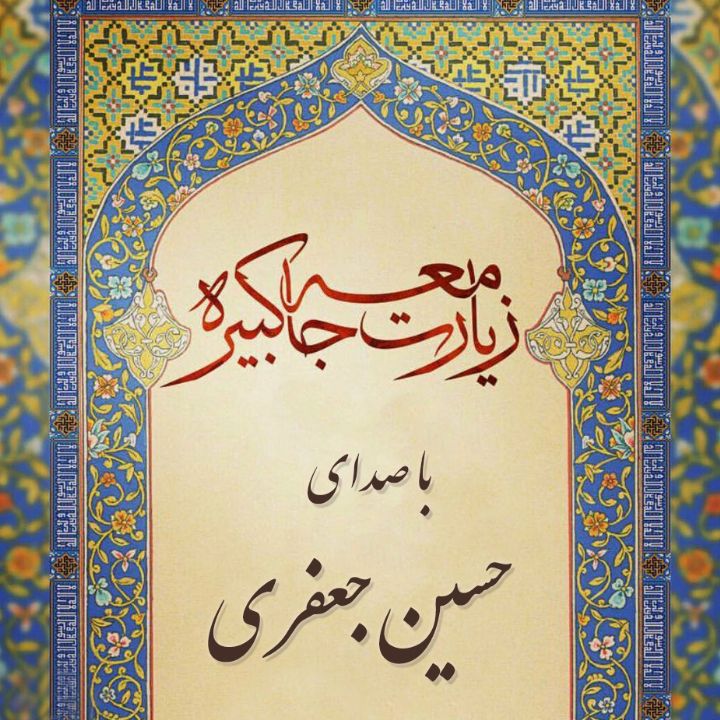 زیارت جامعه کبیره
با صدای
حسین جعفری